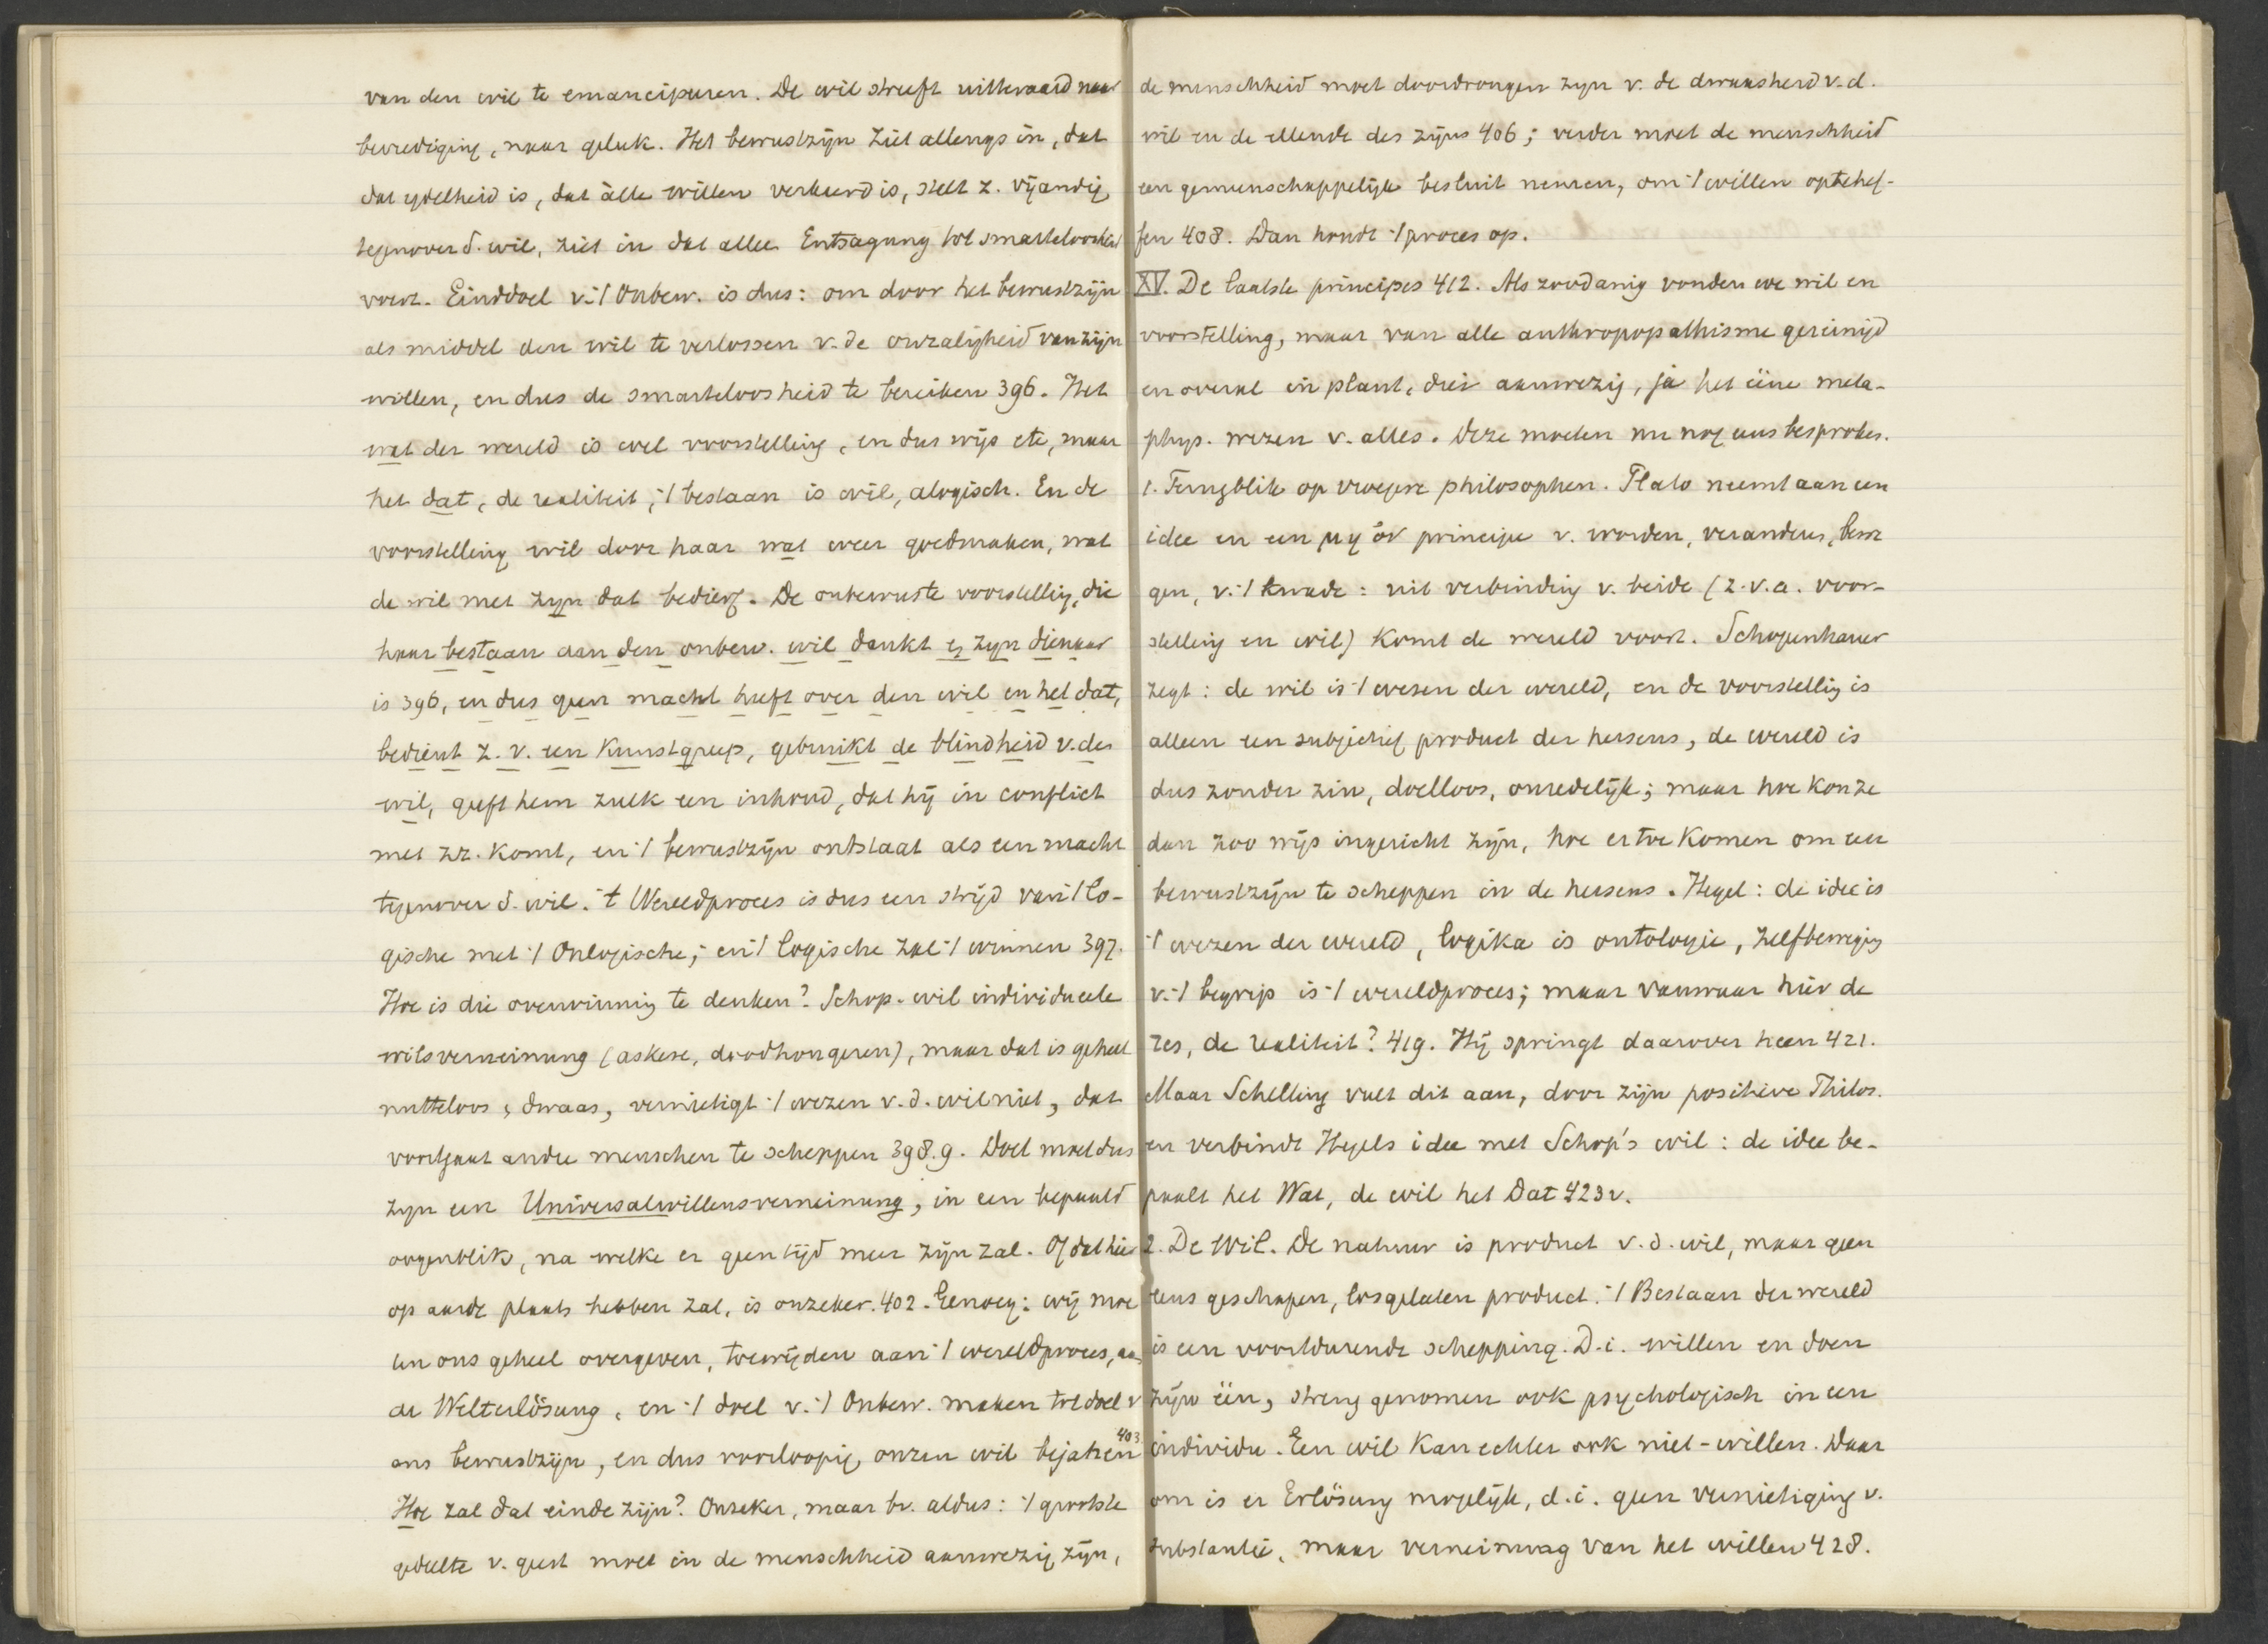 van den wil te emancipeeren. De wil streeft uitteraard naar
bevrediging, naar geluk. Het bewustzijn ziet allengs in, dat
dat ydelheid is, dat àlle willen verkeerd is, stelt z. vijandig
tegenover d. wil, ziet in dat allee Entsagung tot smarteloosheid
voert. Einddoel v. 't Onbew. is dus: om door het bewustzijn
als middel den wil te verlossen v. de onzaligheid van zijn
willen, en dus de smarteloosheid te bereiken 396. Het
wat der wereld is wel voorstelling, en dus wijs etc, maar
het dat, de realiteit, 't bestaan is wil, alogisch. En de
voorstelling wil door haar wat weer goedmaken, wat
de wil met zyn dat bedierf. De onbewuste voorstelling, die
haar bestaan aan den onbew. wil dankt en zyn dienaar
is 396, en dus geen macht heeft over den wil en het dat,
bedient z. v. een Kunstgreep, gebruikt de blindheid v. den
wil, geeft hem zulk een inhoud, dat hij in conflict
met zr. komt, en 't bewustzijn ontstaat als een macht
tegenover d. wil. 't Wereldproces is dus een strijd van 't lo-
gische met 't Onlogische; en 't logische zal 't winnen 397.
Hoe is die overwinning te denken? Schop. wil individueele
wilsverneinung (askese, doodhongeren), maar dat is geheel
nutteloos, dwaas, vernietigt 't wezen v. d. wil niet, dat
voortgaat andre menschen te scheppen 398.9. Doel moet dus
zyn een Universalwillensverneinung, in een bepaald
oogenblik, na welke er geen tijd meer zijn zal. Of dat hier
op aarde plaats hebben zal, is onzeker. 402. Genoeg: wij moe
ten ons geheel overgeven, toewijden aan 't wereldproces, aan
de Welterlösung, en 't doel v. 't Onbew. maken tot doel v
ons bewustzijn, en dus voorloopig onzen wil bejahen 403
Hoe zal dat einde zijn? Onzeker, maar bv. aldus: 't grootste
gedeelte v. geest moet in de menschheid aanwezig zijn,
de menschheid moet doordrongen zyn v. de dwaasheid v. d.
wil en de ellende des zijns 406; verder moet de menschheid
een gemeenschappelijk besluit nemen, om 't willen optehef-
fen 408. Dan houdt 't proces op.
XV. De laatste principes 412. Als zoodanig vonden we wil en
voorstelling, maar van alle anthropopathisme gereinigd
en overal in plant, dier aanwezig, ja het ééne meta-
phys. wezen v. alles. Deze moeten nu nog eens besproken.
1. Terugblik op vroegere philosophen. Plato neemt aan een
idee en een μη ὄν principe v. worden, veranderen, bewe
gen, v. 't kwade: uit verbinding v. beide (z. v. a. voor-
stelling en wil) komt de wereld voort. Schopenhauer
zegt: de wil is 't wezen der wereld, en de voorstelling is
alleen een subjectief product der hersens, de wereld is
dus zonder zin, doelloos, onredelijk; maar hoe kon ze
dan zoo wijs ingericht zijn, hoe er toe komen om een
bewustzijn te scheppen in de hersens. Hegel: de idee is
't wezen der wereld, logika is ontologie, zelfbeweging
v. 't begrip is 't wereldproces; maar vanwaar hier de
res, de realiteit? 419. Hij springt daarover heen 421.
Maar Schelling vult dit aan, door zijn positieve Philos.
en verbindt Hegels idee met Schop's wil: de idee be-
paalt het Wat, de wil het Dat 423v.
2. De Wil. De natuur is product v. d. wil, maar geen
eens geschapen, losgelaten product. 't Bestaan der wereld
is een voortdurende schepping. D. i. willen en doen
zijn één, streng genomen ook psychologisch in een
individu. Een wil kan echter ook niet-willen. Daar
om is er Erlösung mogelijk, d. i. geen vernietiging v.
substantie, maar verneinung van het willen 428.